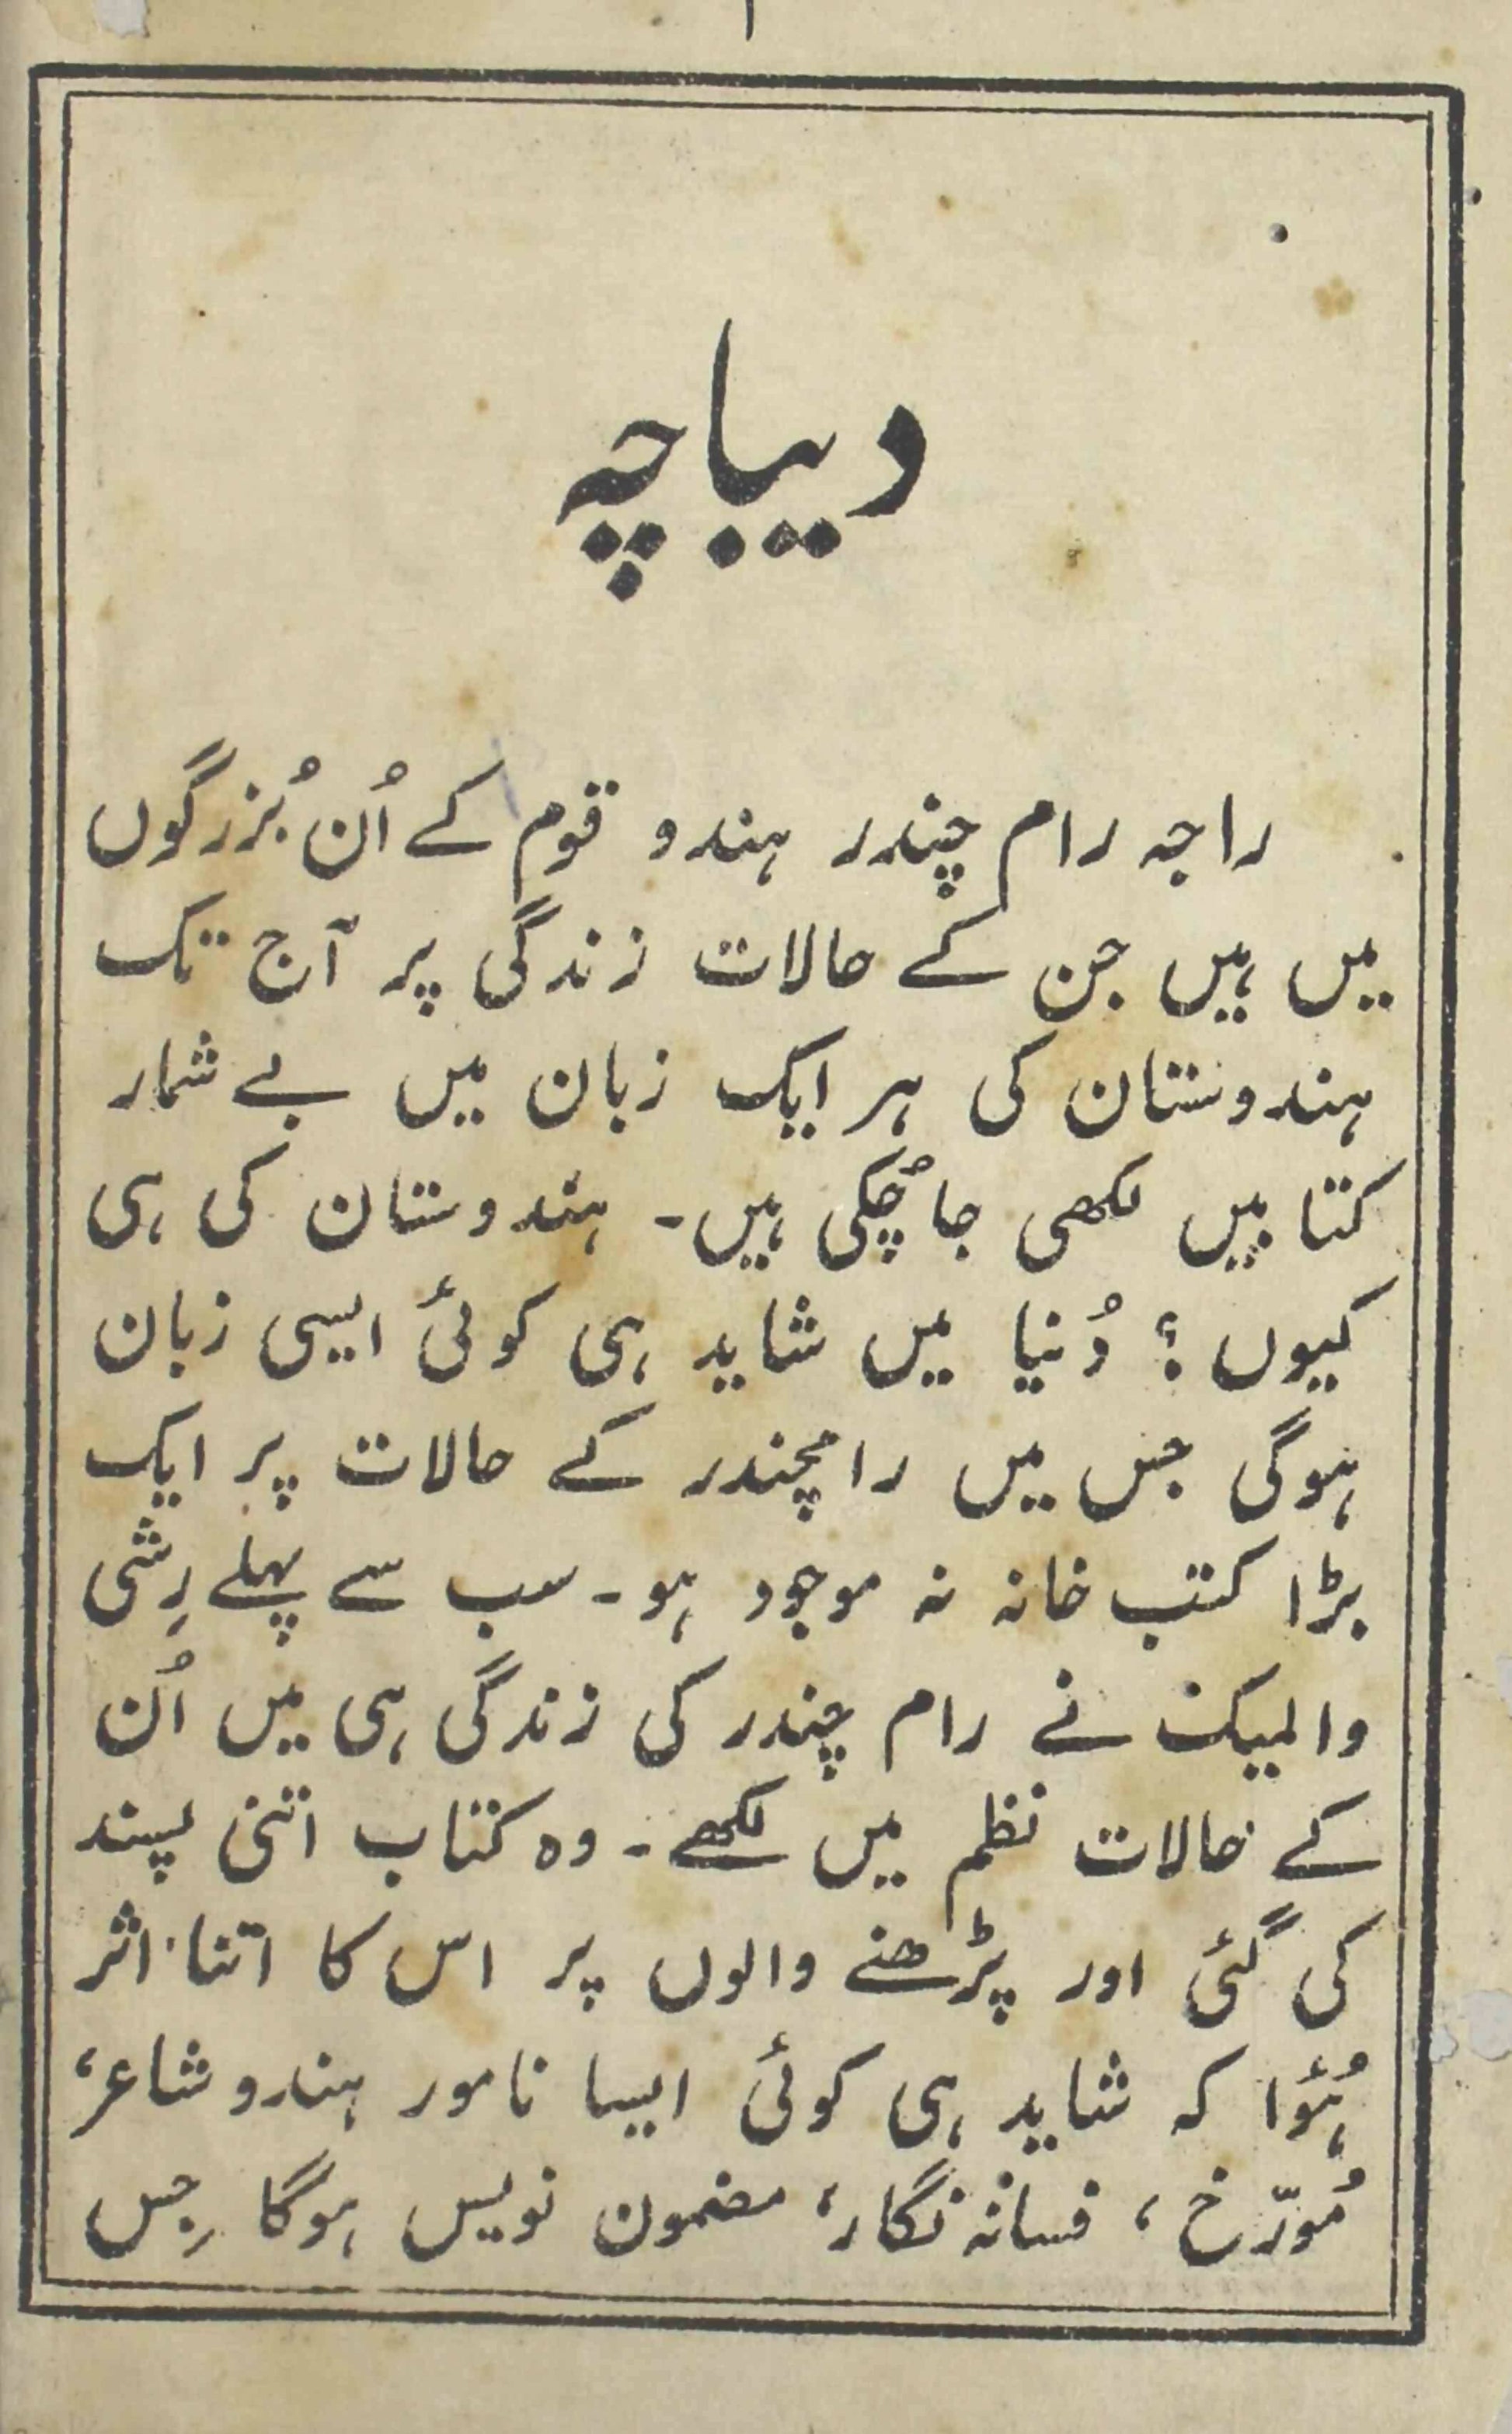 ۱
دیباچہ
راجہ رام چندر ہندو قوم کے اُن بُزرگوں
میں ہیں جن کے حالات زندگی پر آج تک
ہندوستان کی ہر ایک زبان میں بے شمار
کتابیں لکھی جا چُکی ہیں۔ ہندوستان کی ہی
کیوں؟ دُنیا میں شاید ہی کوئی ایسی زبان
ہوگی جس میں رامچندر کے حالات پر ایک
بڑا کتب خانہ نہ موجود ہو۔ سب سے پہلے رِشی
والمیک نے رام چندر کی زندگی ہی میں اُن
کے حالات نظم میں لکھے۔ وہ کتاب اتنی پسند
کی گئی اور پڑھنے والوں پر اس کا اتنا اثر
ہُؤا کہ شاید ہی کوئی ایسا نامور ہندو شاعر،
مُورّخ، فسانہ نگار، مضمون نویس ہوگا جِس